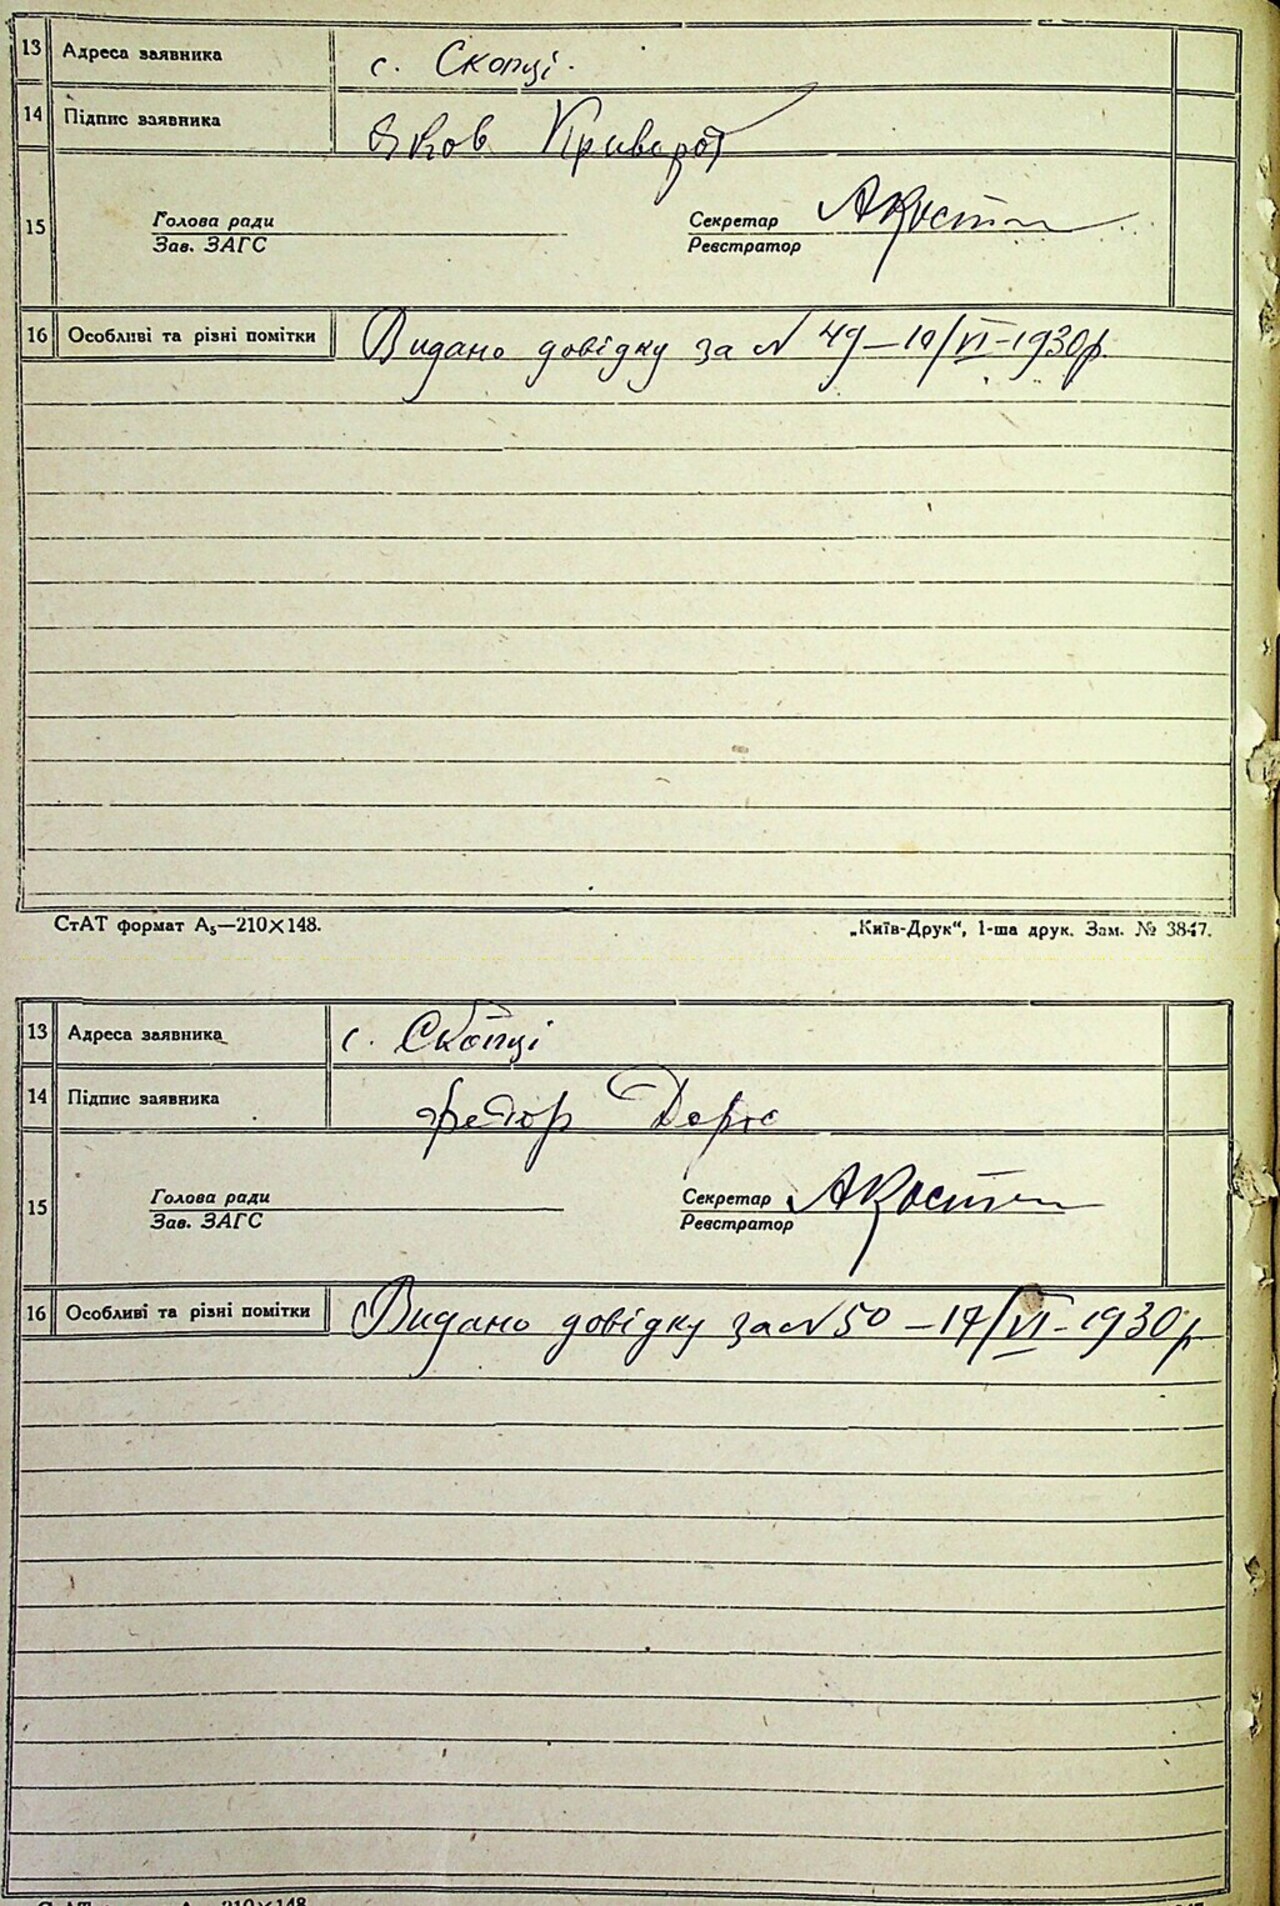 13 Адреса заявника с. Скопці.
14 Підпис заявника Яков Криворот
15 Голова ради Секретар
Зав. ЗАГС Реєстратор
16 Особливі та різні помітки Видано довідку за N 49 – /VI – 1930 р.
СтАТ формат А₅—210×148. „Київ-Друк“, 1-ша друк. Зам. № 3847.
13 Адреса заявника с. Скопці
14 Підпис заявника Федор
15 Голова ради Секретар
Зав. ЗАГС Реєстратор
16 Особливі та різні помітки Видано довідку за N 50 – 17/VI – 1930 р